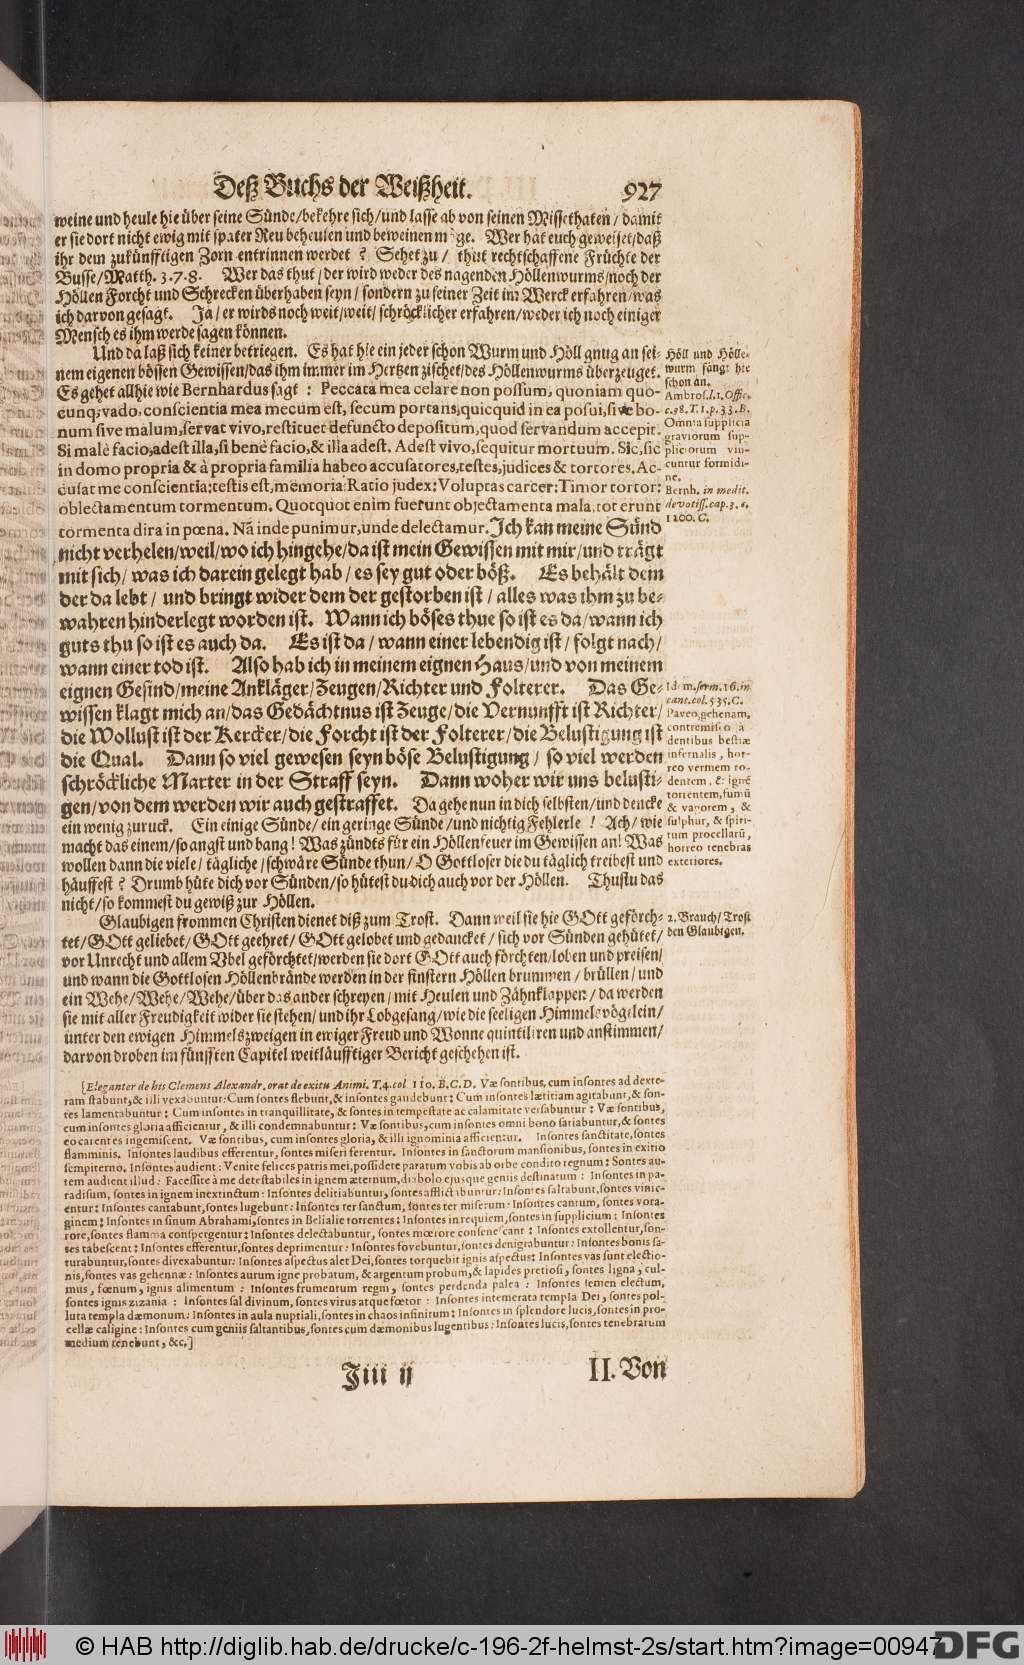 Deß Buchs der Weißheit. 927
weine und heule hie über seine Sünde/bekehre sich/und lasse ab von seinen Missethaten/ damit
er sie dort nicht ewig mit spater Reu beheulen und beweinen möge. Wer hat euch geweiset/daß
ihr dem zukünfftigen Zorn entrinnen werdet? Sehet zu/ thut rechtschaffene Früchte der
Busse/Matth. 3. 7. 8. Wer das thut/der wird weder des nagenden Höllenwurms/noch der
Höllen Forcht und Schrecken überhaben seyn/ sondern zu seiner Zeit im Werck erfahren/was
ich darvon gesagt. Ja/ er wirds noch weit/weit/ schröcklicher erfahren/weder ich noch einiger
Mensch es ihm werde sagen können.
Und da laß sich keiner betriegen. Es hat hie ein jeder schon Wurm und Höll gnug an sei-
nem eigenen bössen Gewissen/das ihm immer im Hertzen zischet/des Höllenwurms überzeuget.
Es gehet allhie wie Bernhardus sagt: Peccata mea celare non possum, quoniam quo-
cunq; vado, conscientia mea mecum est, secum portans, quicquid in ea posui, sive bo-
num sive malum, servat vivo, restituet defuncto depositum, quod servandum accepit.
Si malè facio, adest illa, si benè facio, & illa adest. Adest vivo, sequitur mortuum. Sic, sic
in domo propria & à propria familia habeo accusatores, testes, judices & tortores. Ac-
cusat me conscientia: testis est, memoria: Ratio judex: Voluptas carcer: Timor tortor:
oblectamentum tormentum. Quotquot enim fuerunt objectamenta mala, tot erunt
tormenta dira in pœna. Nã inde punimur, unde delectamur. Ich kan meine Sünd
nicht verhelen/weil/wo ich hingehe/da ist mein Gewissen mit mir/und trägt
mit sich/ was ich darein gelegt hab/ es sey gut oder böß. Es behält dem
der da lebt/ und bringt wider dem der gestorben ist/ alles was ihm zu be-
wahren hinderlegt worden ist. Wann ich böses thue so ist es da/wann ich
guts thu so ist es auch da. Es ist da/ wann einer lebendig ist/ folgt nach/
wann einer tod ist. Also hab ich in meinem eignen Haus/und von meinem
eignen Gesind/meine Ankläger/Zeugen/Richter und Folterer. Das Ge-
wissen klagt mich an/das Gedächtnus ist Zeuge/die Vernunfft ist Richter/
die Wollust ist der Kercker/die Forcht ist der Folterer/die Belustigung ist
die Qual. Dann so viel gewesen seyn böse Belustigung/ so viel werden
schröckliche Marter in der Straff seyn. Dann woher wir uns belusti-
gen/von dem werden wir auch gestraffet. Da gehe nun in dich selbsten/und dencke
ein wenig zuruck. Ein einige Sünde/ ein geringe Sünde/und nichtig Fehlerle! Ach/ wie
macht das einem/so angst und bang! Was zündts für ein Höllenfeuer im Gewissen an! Was
wollen dann die viele/ tägliche/schwäre Sünde thun/ O Gottloser die du täglich treibest und
häuffest? Drumb hüte dich vor Sünden/so hütest du dich auch vor der Höllen. Thustu das
nicht/so kommest du gewiß zur Höllen.
Glaubigen frommen Christen dienet diß zum Trost. Dann weil sie hie GOtt geförch-
tet/GOtt geliebet/GOtt geehret/GOtt gelobet und gedancket/ sich vor Sünden gehütet/
vor Unrecht und allem Vbel geförchtet/werden sie dort GOtt auch förchten/loben und preisen/
und wann die Gottlosen Höllenbrände werden in der finstern Höllen brummen/ brüllen/ und
ein Wehe/Wehe/Wehe/über das ander schreyen/ mit Heulen und Zähnklappen/ da werden
sie mit aller Freudigkeit wider sie stehen/ und ihr Lobgesang/wie die seeligen Himmelsvögelein/
unter den ewigen Himmelszweigen in ewiger Freud und Wonne quintiliren und anstimmen/
darvon droben im fünfften Capitel weitläufftiger Bericht geschehen ist.
Höll und Hölle-
wurm fängt hie
schon an.
Ambros. l. 1. Offic.
c. 38. T. 1. p. 33. B.
Omnia supplicia
graviorum sup-
pliciorum vin-
cuntur formidi-
ne.
Bernh. in medit.
devotiss. cap. 3. c.
1200. C.
Idem. serm. 16. in
cant. col. 535. C.
Paveo gehenam,
contremisco à
dentibus bestiæ
infernalis, hor-
reo vermem ro-
dentem, & ignẽ
torrentem, fumũ
& vaporem, &
sulphur, & spiri-
tum procellarũ,
horreo tenebras
exteriores.
2. Brauch/ Trost
den Glaubigen.
[Eleganter de his Clemens Alexandr. orat de exitu Animi. T. 4. col 110. B. C. D. Væ sontibus, cum insontes ad dexte-
ram stabunt, & illi vexabuntur: Cum sontes flebunt, & insontes gaudebunt: Cum insontes lætitiam agitabunt, & son-
tes lamentabuntur: Cum insontes in tranquillitate, & sontes in tempestate ac calamitate versabuntur: Væ sontibus,
cum insontes gloria afficientur, & illi condemnabuntur: Væ sontibus, cum insontes omni bono satiabuntur, & sontes
eo carentes ingemiscent. Væ sontibus, cum insontes gloria, & illi ignominia afficientur. Insontes sanctitate, sontes
flamminis. Insontes laudibus efferentur, sontes miseri ferentur. Insontes in sanctorum mansionibus, sontes in exitio
sempiterno. Insontes audient: Venite felices patris mei, possidete paratum vobis ab orbe condito regnum: Sontes au-
tem audient illud: Facessite à me detestabiles in ignem æternum, diabolo ejusque geniis destinatum: Insontes in pa-
radisum, sontes in ignem inextinctum: Insontes delitiabuntur, sontes afflictabuntur: Insontes saltabunt, sontes vincie-
entur: Insontes cantabunt, sontes lugebunt: Insontes ter sanctum, sontes ter miserum: Insontes cantum, sontes vora-
ginem: Insontes in sinum Abrahami, sontes in Belialie torrentes: Insontes in requiem, sontes in supplicium: Insontes
rore, sontes flamma conspergentur: Insontes delectabuntur, sontes mœrore consenescant: Insontes extollentur, son-
tes tabescent: Insontes efferentur, sontes deprimentur: Insontes fovebuntur, sontes denigrabuntur: Insontes bonis sa-
turabuntur, sontes divexabuntur: Insontes aspectus alet Dei, sontes torquebit ignis aspectus: Insontes vas sunt electio-
nis, sontes vas gehennæ: Insontes aurum igne probatum, & argentum probum, & lapides pretiosi, sontes ligna, cul-
mus, fœnum, ignis alimentum: Insontes frumentum regni, sontes perdenda palea: Insontes semen electum,
sontes ignis zizania: Insontes sal divinum, sontes virus atque fœtor: Insontes intemerata templa Dei, sontes pol-
luta templa dæmonum: Insontes in aula nuptiali, sontes in chaos infinitum: Insontes in splendore lucis, sontes in pro-
cellæ caligine: Insontes cum geniis saltantibus, sontes cum dæmonibus lugentibus: Insontes lucis, sontes tenebrarum
medium tenebunt, &c.]
Jiii ij II. Von
© HAB http://diglib.hab.de/drucke/c-196-2f-helmst-2s/start.htm?image=00947
DFG